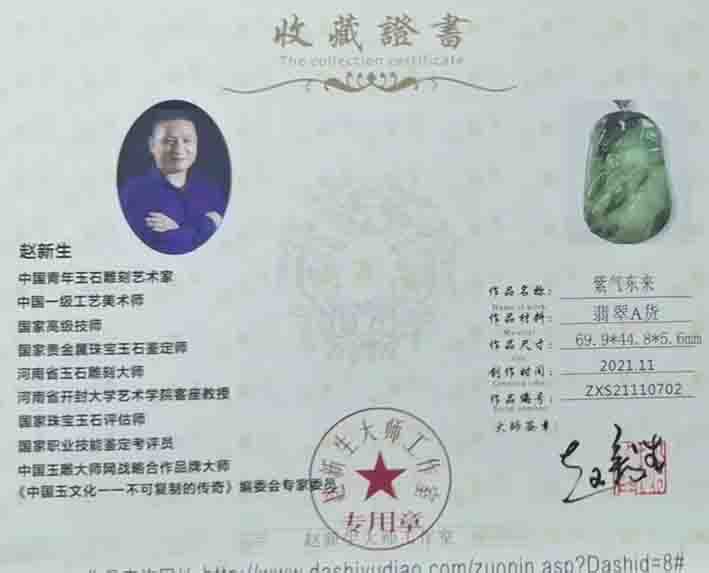 收藏證書
The collection certificate
赵新生
中国青年玉石雕刻艺术家
中国一级工艺美术师
国家高级技师
国家贵金属珠宝玉石鉴定师
河南省玉石雕刻大师
河南省开封大学艺术学院客座教授
国家珠宝玉石评估师
国家职业技能鉴定考评员
中国玉雕大师网战略合作品牌大师
《中国玉文化——不可复制的传奇》编委会专家委员
作品名称: 紫气东来
Name of work
作品材料: 翡翠A货
Material
作品尺寸: 69.9*44.8*5.6mm
Size
创作时间: 2021.11
作品编号: ZXS21110702
大师签章:
赵新生
赵新生大师工作室
专用章
赵新生大师工作室
作品查询网址:http://www.dashiyudiao.com/zuopin.asp?Dashid=8#